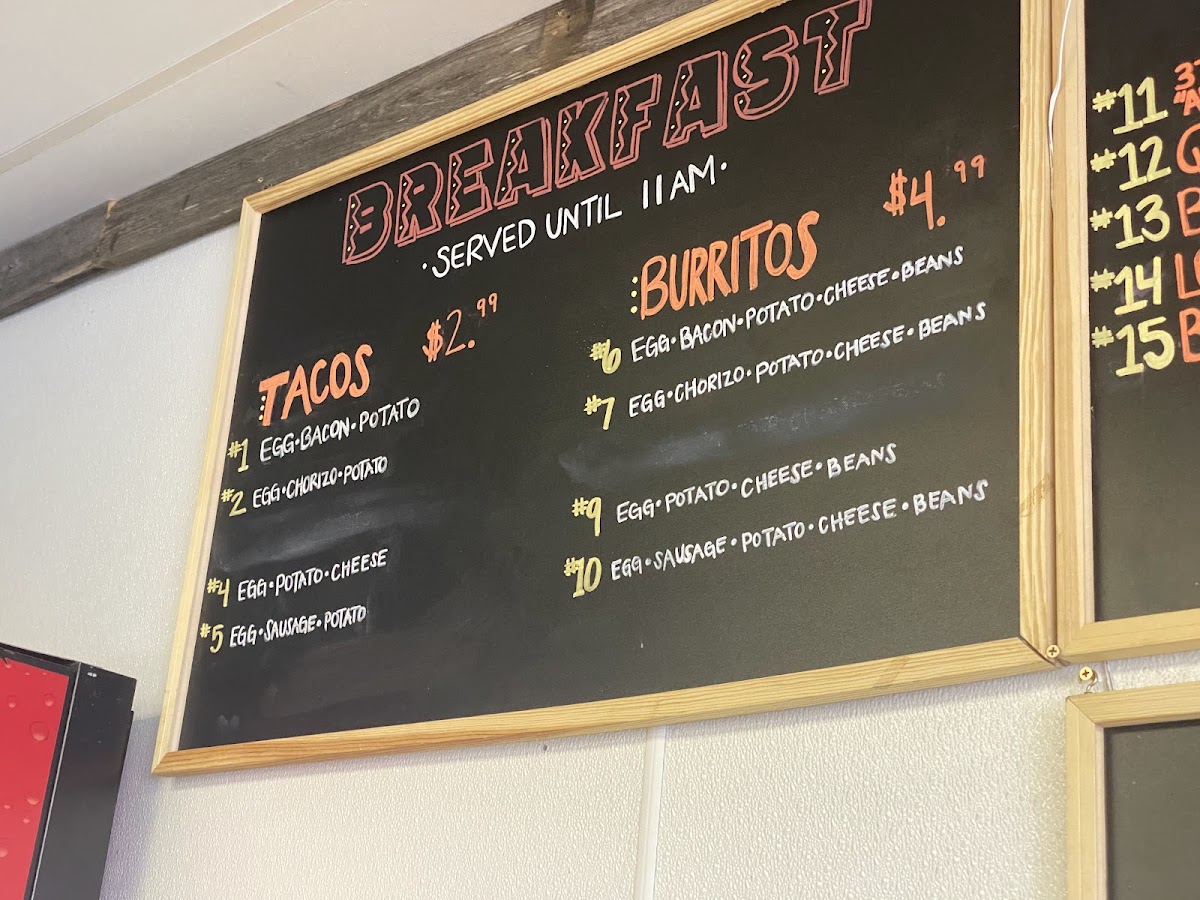 BREAKFAST
·SERVED UNTIL 11AM·
TACOS $2.99
#1 EGG·BACON·POTATO
#2 EGG·CHORIZO·POTATO
#4 EGG·POTATO·CHEESE
#5 EGG·SAUSAGE·POTATO
BURRITOS $4.99
#6 EGG·BACON·POTATO·CHEESE·BEANS
#7 EGG·CHORIZO·POTATO·CHEESE·BEANS
#9 EGG·POTATO·CHEESE·BEANS
#10 EGG·SAUSAGE·POTATO·CHEESE·BEANS
#11
#12
#13
#14
#15